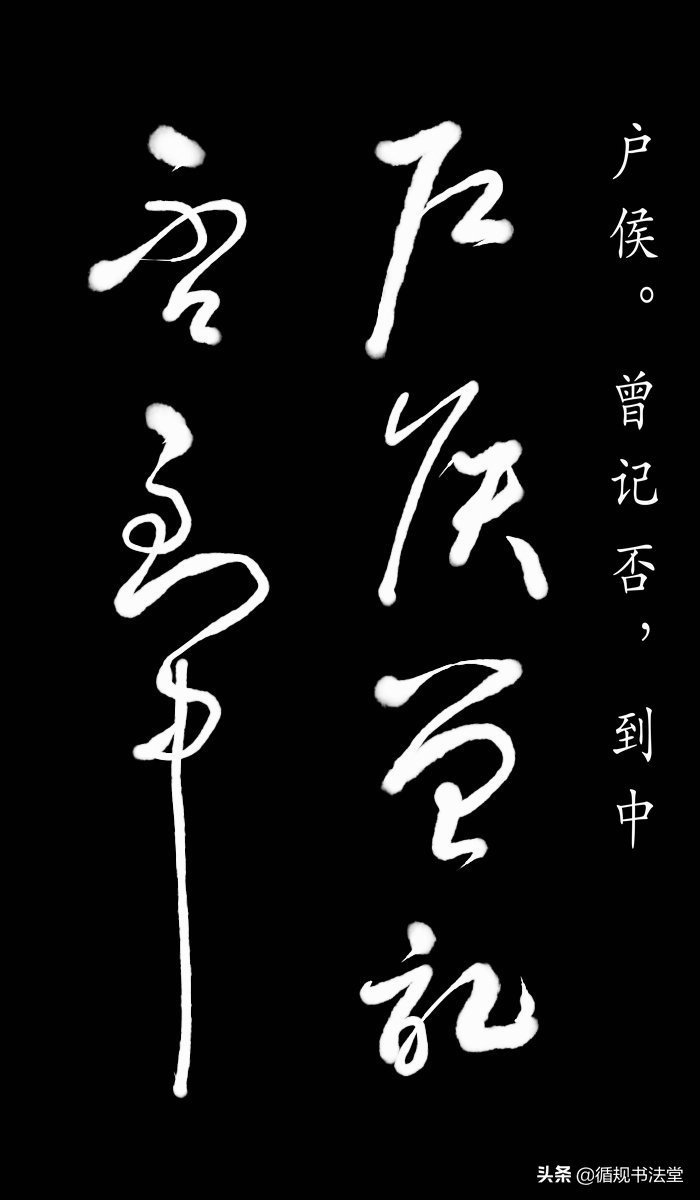 户侯。曾记否，到中
户侯曾记
否到中
头条 @循规书法堂